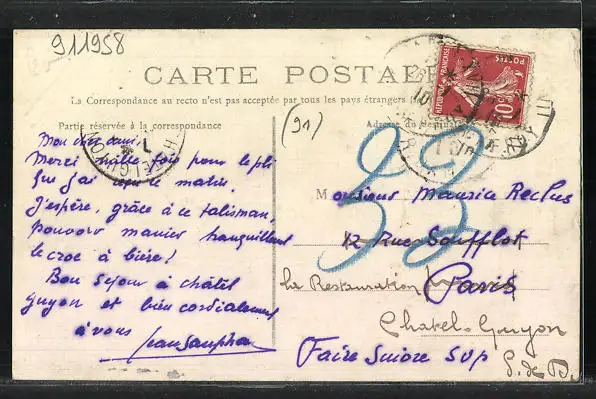 911958
CARTE POSTALE
La Correspondance au recto n'est pas acceptée par tous les pays étrangers
Partie réservée à la correspondance
(91)
Adresse du Destinataire
Mon cher ami,
Merci mille fois pour le pli
que j'ai reçu ce matin.
J'espère, grâce à ce talisman,
pouvoir manier tranquillement
le croc à bière!
Bon séjour à châtel
guyon et bien cordialement
à vous
33
Monsieur Maurice Reclus
12 Rue Soufflot
Paris
la Restauration
Chatel-Guyon
P. de D.
Faire Suivre SVP
POSTES
REPUBLIQUE FRANÇAISE
10